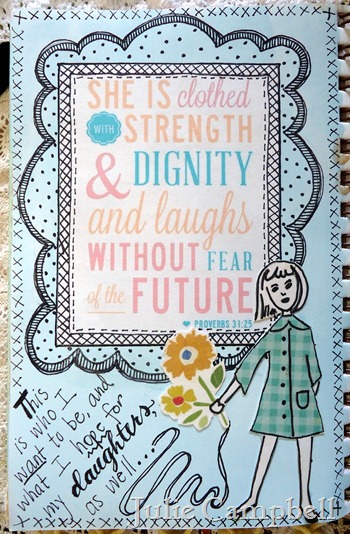 SHE IS clothed
WITH STRENGTH
& DIGNITY
and laughs
WITHOUT FEAR
of the FUTURE
PROVERBS 31:25
This
is who I
want to be, and
what I hope for
my daughters,
as well...
Julie Campbell